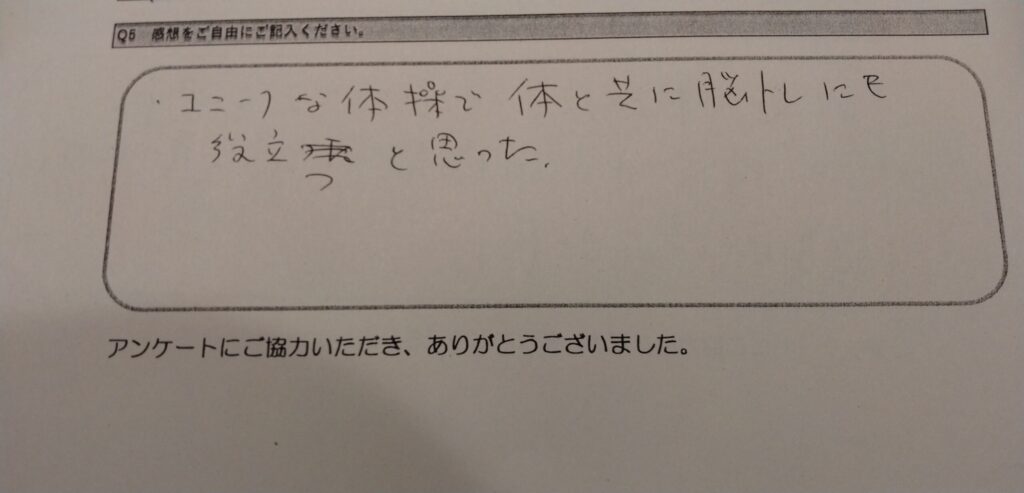 Q5 感想をご自由にご記入ください。
・ユニークな体操で 体と共に脳トレにも
役立つと思った。
アンケートにご協力いただき、ありがとうございました。